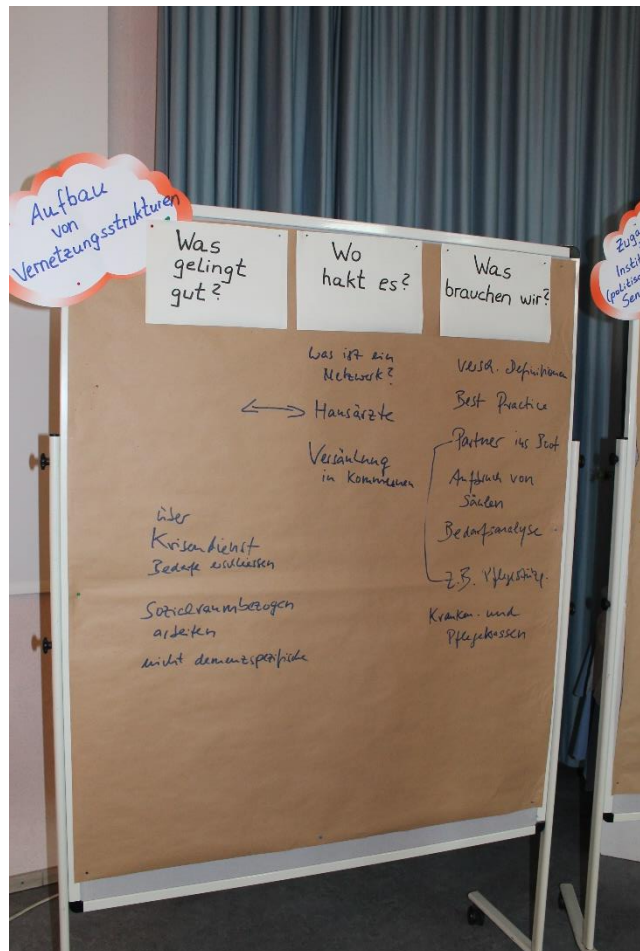 Aufbau
von
Vernetzungsstrukturen
Was
gelingt
gut?
über
Krisendienst
Bedarfe erschliessen
Sozialraumbezogen
arbeiten
nicht demenzspezifische
Wo
hakt es?
Was ist ein
Netzwerk?
Hausärzte
Versäulung
in Kommunen
Was
brauchen wir?
versch. Definitionen
Best Practice
Partner ins Boot
Aufbruch von
Säulen
Bedarfsanalyse
z.B. Pflegestütz.
Kranken- und
Pflegekassen